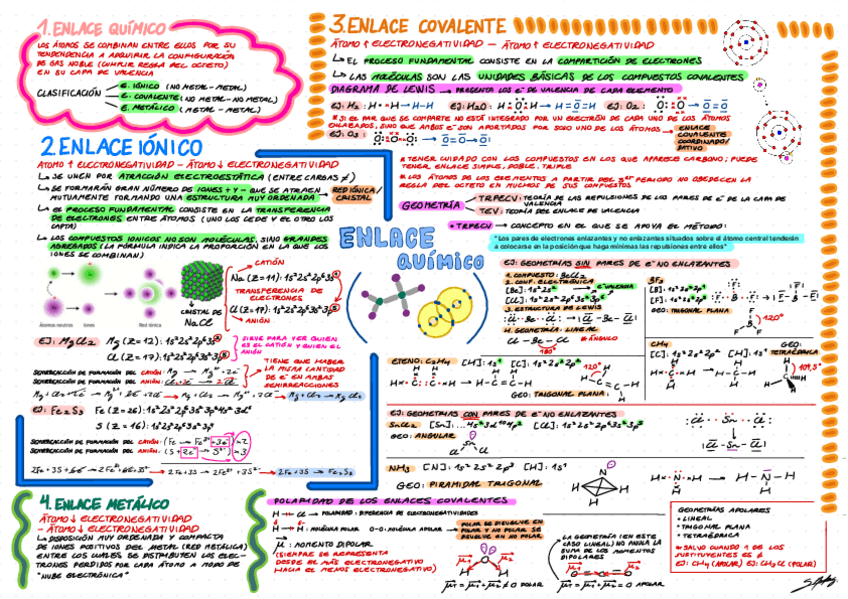 1. ENLACE QUÍMICO
LOS ÁTOMOS SE COMBINAN ENTRE ELLOS POR SU
TENDENCIA A ADQUIRIR LA CONFIGURACIÓN
DE GAS NOBLE (CUMPLIR REGLA DEL OCTETO)
EN SU CAPA DE VALENCIA
CLASIFICACIÓN
E. IÓNICO (NO METAL-METAL)
E. COVALENTE (NO METAL-NO METAL)
E. METÁLICO (METAL-METAL)
2. ENLACE IÓNICO
ÁTOMO ↑ ELECTRONEGATIVIDAD - ÁTOMO ↓ ELECTRONEGATIVIDAD
↳ SE UNEN POR ATRACCIÓN ELECTROESTÁTICA (ENTRE CARGAS ≠)
↳ SE FORMARÁN GRAN NÚMERO DE IONES + Y - QUE SE ATRAEN
MUTUAMENTE FORMANDO UNA ESTRUCTURA MUY ORDENADA → RED IÓNICA/
CRISTAL
↳ EL PROCESO FUNDAMENTAL CONSISTE EN LA TRANSFERENCIA
DE ELECTRONES ENTRE ÁTOMOS (UNO LOS CEDE Y EL OTRO LOS
CAPTA)
↳ LOS COMPUESTOS IONICOS NO SON MOLÉCULAS, SINO GRANDES
AGREGADOS (LA FÓRMULA INDICA LA PROPORCIÓN EN LA QUE LOS
IONES SE COMBINAN)
Átomos neutros
Iones
Red iónica
CRISTAL DE
NaCl
CATIÓN
Na (Z=11): 1s²2s²2p⁶3s¹
TRANSFERENCIA DE
ELECTRONES
Cl (Z=17): 1s²2s²2p⁶3s²3p⁵
ANIÓN
EJ: MgCl₂
Mg (Z=12): 1s²2s²2p⁶3s²
Cl (Z=17): 1s²2s²2p⁶3s²3p⁵
SIEVE PARA VER QUIEN
ES EL CATIÓN Y QUIEN EL
ANIÓN
SEMIRREACCIÓN DE FORMACIÓN DEL CATIÓN:
SEMIRREACCIÓN DE FORMACIÓN DEL ANIÓN:
TIENE QUE HABER
LA MISMA CANTIDAD
DE e⁻ EN AMBAS
SEMIRREACCIONES
Mg + Cl₂ → MgCl₂
EJ: Fe₂S₃
Fe (Z=26): 1s²2s²2p⁶3s²3p⁶4s²3d⁶
S (Z=16): 1s²2s²2p⁶3s²3p⁴
SEMIRREACCIÓN DE FORMACIÓN DEL CATIÓN: (Fe → Fe³⁺ + 3e⁻) × 2
SEMIRREACCIÓN DE FORMACIÓN DEL ANIÓN: (S + 2e⁻ → S²⁻) × 3
2Fe + 3S + 6e⁻ → 2Fe³⁺ + 6e⁻ + 3S²⁻ → 2Fe + 3S → 2Fe³⁺ + 3S²⁻ → 2Fe + 3S → Fe₂S₃
4. ENLACE METÁLICO
ÁTOMO ↓ ELECTRONEGATIVIDAD
- ÁTOMO ↓ ELECTRONEGATIVIDAD
↳ DISPOSICIÓN MUY ORDENADA Y COMPACTA
DE IONES POSITIVOS DEL METAL (RED METÁLICA)
ENTRE LOS CUALES SE DISTRIBUYEN LOS ELEC-
TRONES PERDIDOS POR CADA ÁTOMO A MODO DE
"NUBE ELECTRÓNICA"
ENLACE
QUÍMICO
3. ENLACE COVALENTE
ÁTOMO ↑ ELECTRONEGATIVIDAD - ÁTOMO ↑ ELECTRONEGATIVIDAD
↳ EL PROCESO FUNDAMENTAL CONSISTE EN LA COMPARTICIÓN DE ELECTRONES
↳ LAS MOLÉCULAS SON LAS UNIDADES BÁSICAS DE LOS COMPUESTOS COVALENTES
DIAGRAMA DE LEWIS → PRESENTA LOS e⁻ DE VALENCIA DE CADA ELEMENTO
EJ: H₂: H·×H → H-H
EJ: H₂O:
EJ: O₂:
* SI EL PAR QUE SE COMPARTE NO ESTÁ INTEGRADO POR UN ELECTRÓN DE CADA UNO DE LOS ÁTOMOS
ENLAZADOS, SINO QUE AMBOS e⁻ SON APORTADOS POR SOLO UNO DE LOS ÁTOMOS → ENLACE
COVALENTE
COORDINADO/
DATIVO
EJ: O₃
* TENER CUIDADO CON LOS COMPUESTOS EN LOS QUE APARECE CARBONO; PUEDE
TENER ENLACE SIMPLE, DOBLE, TRIPLE
* LOS ÁTOMOS DE LOS ELEMENTOS A PARTIR DEL 3ᵉʳ PERIODO NO OBEDECEN LA
REGLA DEL OCTETO EN MUCHOS DE SUS COMPUESTOS
GEOMETRÍA
TRPECV: TEORÍA DE LAS REPULSIONES DE LOS PARES DE e⁻ DE LA CAPA DE
VALENCIA
TEV: TEORÍA DEL ENLACE DE VALENCIA
• TRPECV → CONCEPTO EN EL QUE SE APOYA EL MÉTODO:
"Los pares de electrones enlazantes y no enlazantes situados sobre el átomo central tenderán
a colocarse en la posición que haga mínimas las repulsiones entre ellos"
EJ: GEOMETRÍAS SIN PARES DE e⁻ NO ENLAZANTES
1. COMPUESTO: BeCl₂
2. CONF. ELECTRÓNICA
[Be]: 1s²2s²
[Cl]: 1s²2s²2p⁶3s²3p⁵
e⁻ VALENCIA
3. ESTRUCTURA DE LEWIS
4. GEOMETRÍA: LINEAL
Cl - Be - Cl
180°
* ÁNGULO
BF₃
[B]: 1s²2s²2p¹
[F]: 1s²2s²2p⁵
GEO: TRIGONAL PLANA
120°
ETENO: C₂H₄
[H]: 1s¹
[C]: 1s²2s²2p²
120°
GEO: TRIGONAL PLANA
CH₄
[C]: 1s²2s²2p²
[H]: 1s¹
GEO:
TETRAÉDRICA
109,5°
EJ: GEOMETRÍAS CON PARES DE e⁻ NO ENLAZANTES
SnCl₂
[Cl]: 1s²2s²2p⁶3s²3p⁵
GEO: ANGULAR
NH₃
[N]: 1s²2s²2p³
[H]: 1s¹
GEO: PIRAMIDAL TRIGONAL
POLARIDAD DE LOS ENLACES COVALENTES
H - Cl → POLARIDAD: DIFERENCIA DE ELECTRONEGATIVIDADES
H - H: MOLÉCULA POLAR
O-O: MOLÉCULA APOLAR
POLAR SE DISUELVE EN
POLAR Y NO POLAR SE
DISUELVE EN NO POLAR
μ: MOMENTO DIPOLAR
(SIEMPRE SE REPRESENTA
DESDE EL MÁS ELECTRONEGATIVO
HACIA EL MENOS ELECTRONEGATIVO)
POLAR
LA GEOMETRÍA (EN ESTE
CASO LINEAL) NO ANULA LA
SUMA DE LOS MOMENTOS
DIPOLARES
APOLAR
GEOMETRÍAS APOLARES
• LINEAL
• TRIGONAL PLANA
• TETRAÉDRICA
* SALVO CUANDO 1 DE LOS
SUSTITUYENTES ES ≠
EJ: CH₄ (APOLAR)